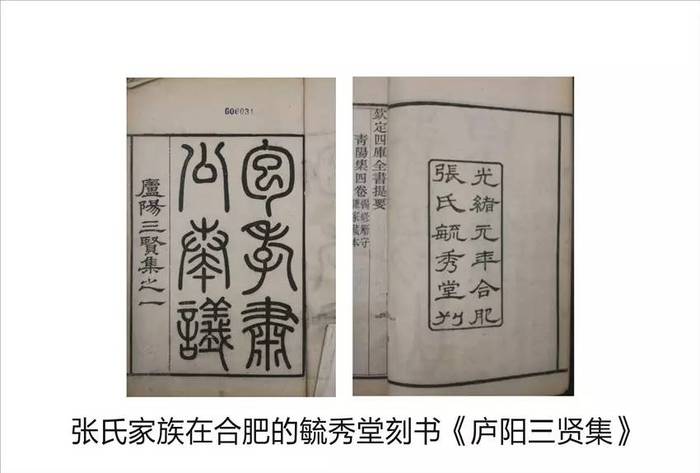 606031
包孝肅
公奏議
廬陽三賢集之一
欽定四庫全書提要
青陽集四卷 編修勵守
謙家藏本
光緒元年合肥
張氏毓秀堂刊
张氏家族在合肥的毓秀堂刻书《庐阳三贤集》